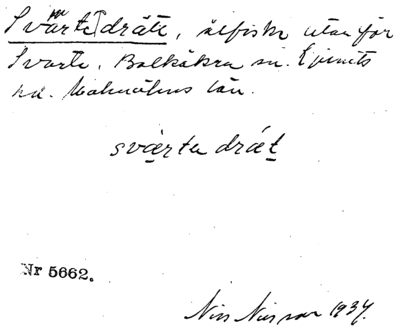 Svarte dräte, ålfiske utanför
Svarte, Balkåkra sn. Ljunits
hd. Malmöhus län.
svarta drät
Nr 5662.
Nils Nilsson 1934.